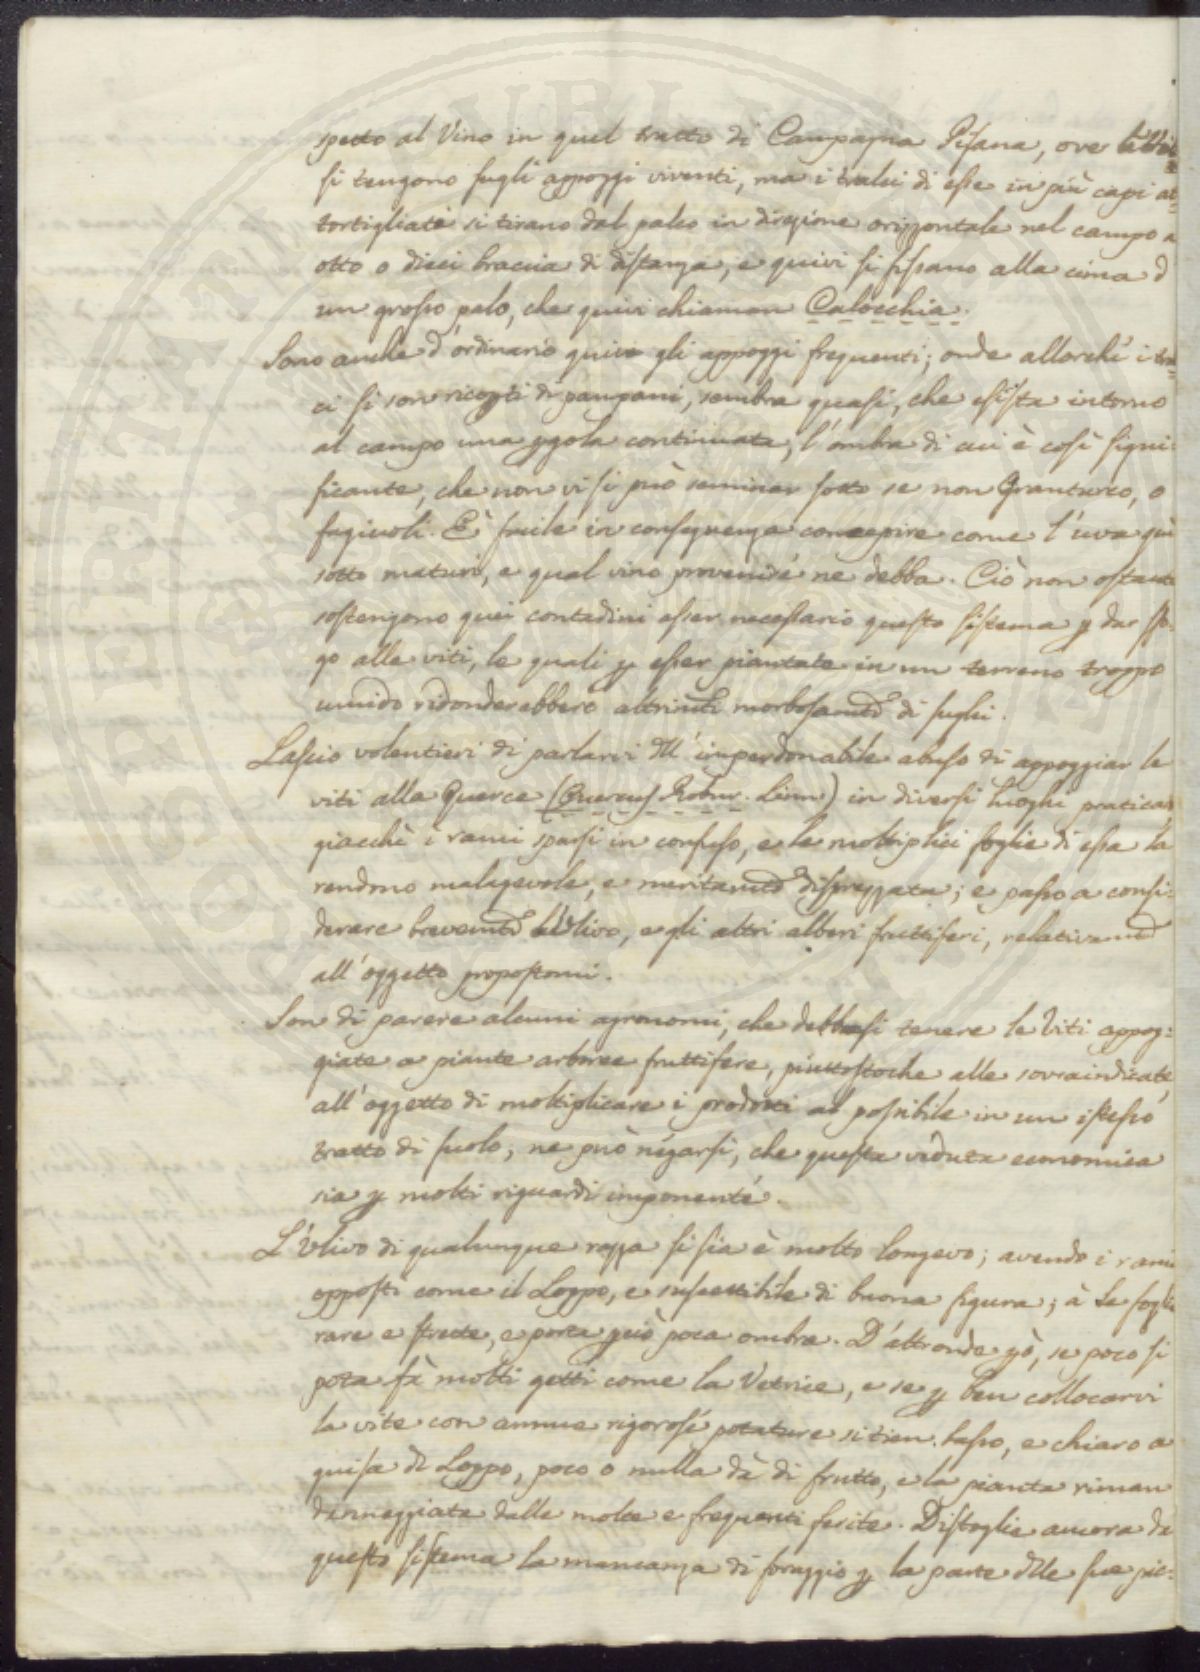 spetto al Vino in quel tratto di Campagna Pisana, ove le Viti
si tengono sugli appoggi viventi, mà i tralci di esse in più capi at=
tortigliate si tirano dal palco in direzione orizzontale nel campo a
otto o dieci braccia di distanza, e quivi si fissano alla cima d'
un grosso palo, che quivi chiaman Calocchia.
Sono anche d'ordinario quivi gli appoggi frequenti; onde allorchè i tral=
ci si son ricopti di pampani, sembra quasi, che esista intorno
al campo una pgola continuata, l'ombra di cui è così signi=
ficante, che non vi si può seminar sotto se non Granturco, o
fagiuoli. È facile in conseguenza concepire come l'uva quì
sotto maturi, e qual vino provenire ne debba. Ciò non ostante
sostengono quei contadini esser necessario questo sistema p dar sfo=
go alle viti, le quali p esser piantate in un terreno troppo
umido ridonderebbero altrimti morbosamte di sughi.
Lascio volentieri di parlarvi dell'imperdonabile abuso di appoggiar le
viti alla Querce (Quercus Robur. Linn) in diversi luoghi praticato
giacchè i rami sparsi in confuso, e le moltiplici foglie di essa la
rendono malagevole, e meritamte disprezzata; e passo a consi=
derare brevemte l'Ulivo, e gli altri alberi fruttiferi, relativamte
all'oggetto propostomi.
Son di parere alcuni agronomi, che debbasi tenere le Viti appog=
giate a piante arboree fruttifere, piuttostoche alle sovraindicate,
all'oggetto di moltiplicare i prodotti al possibile in un istesso
tratto di suolo; ne può negarsi, che questa veduta economica
sia p molti riguardi imponente.
L'Ulivo di qualunque razza si sia è molto longevo; avendo i rami
opposti come il Loppo, e suscettibile di buona figura; à le foglie
rare e strette, e porta pciò poca ombra. D'altronde pò, se poco si
pota fà molti getti come la Vetrice, e se p ben collocarvi
la vite con annue rigorose potature si tien basso, e chiaro a
guisa di Loppo, poco o nulla dà di frutto, e la pianta riman
danneggiata dalle molte e frequenti ferite. Distoglie ancora da
questo sistema la mancanza di foraggio p la parte delle sue pic=